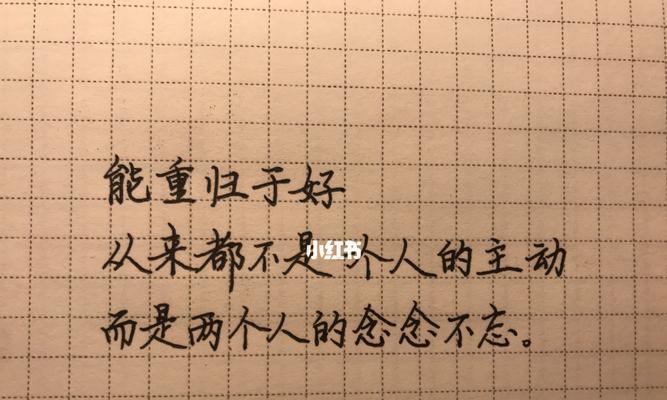 能重归于好
从来都不是个人的主动
小红书
而是两个人的念念不忘。